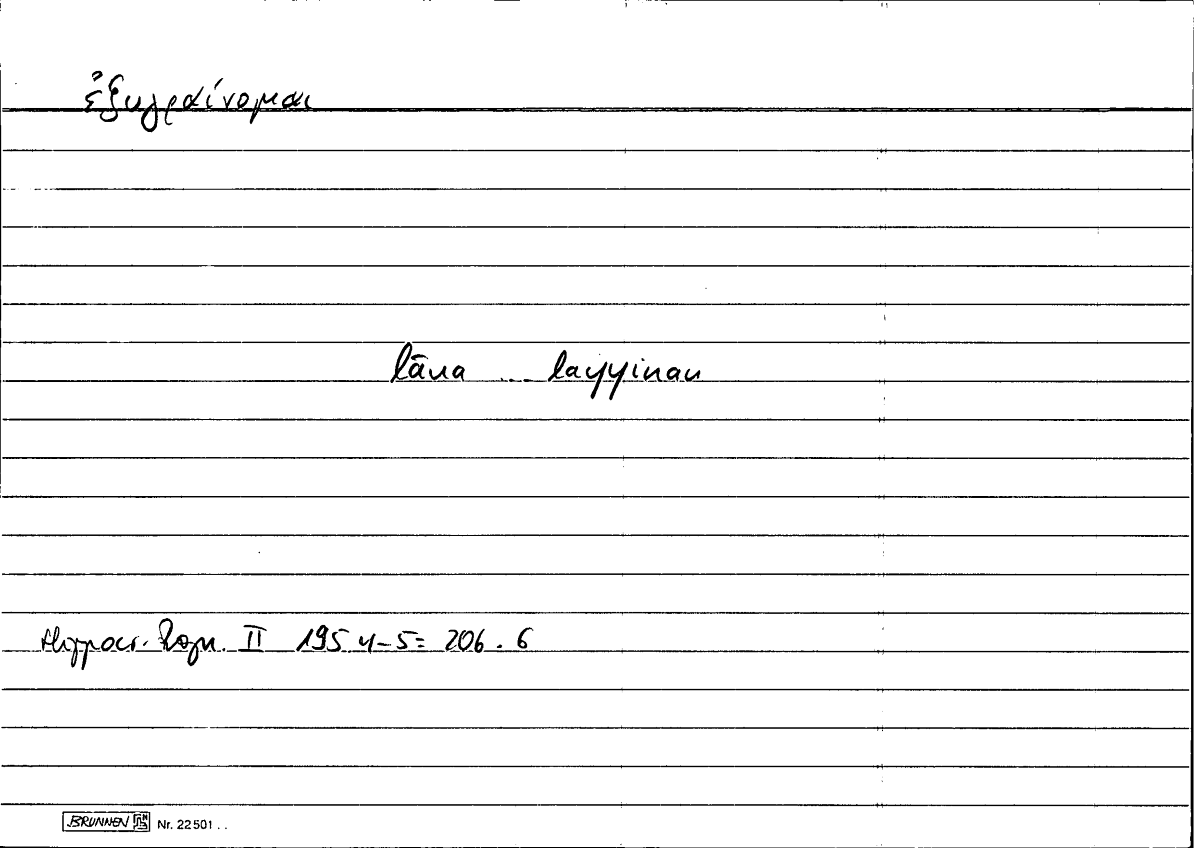 ἐξυγραίνομαι
lāna ... layyinan
Hippocr. Progn. II 195 4-5 = 206.6
BRUNNEN Nr. 22501 . .